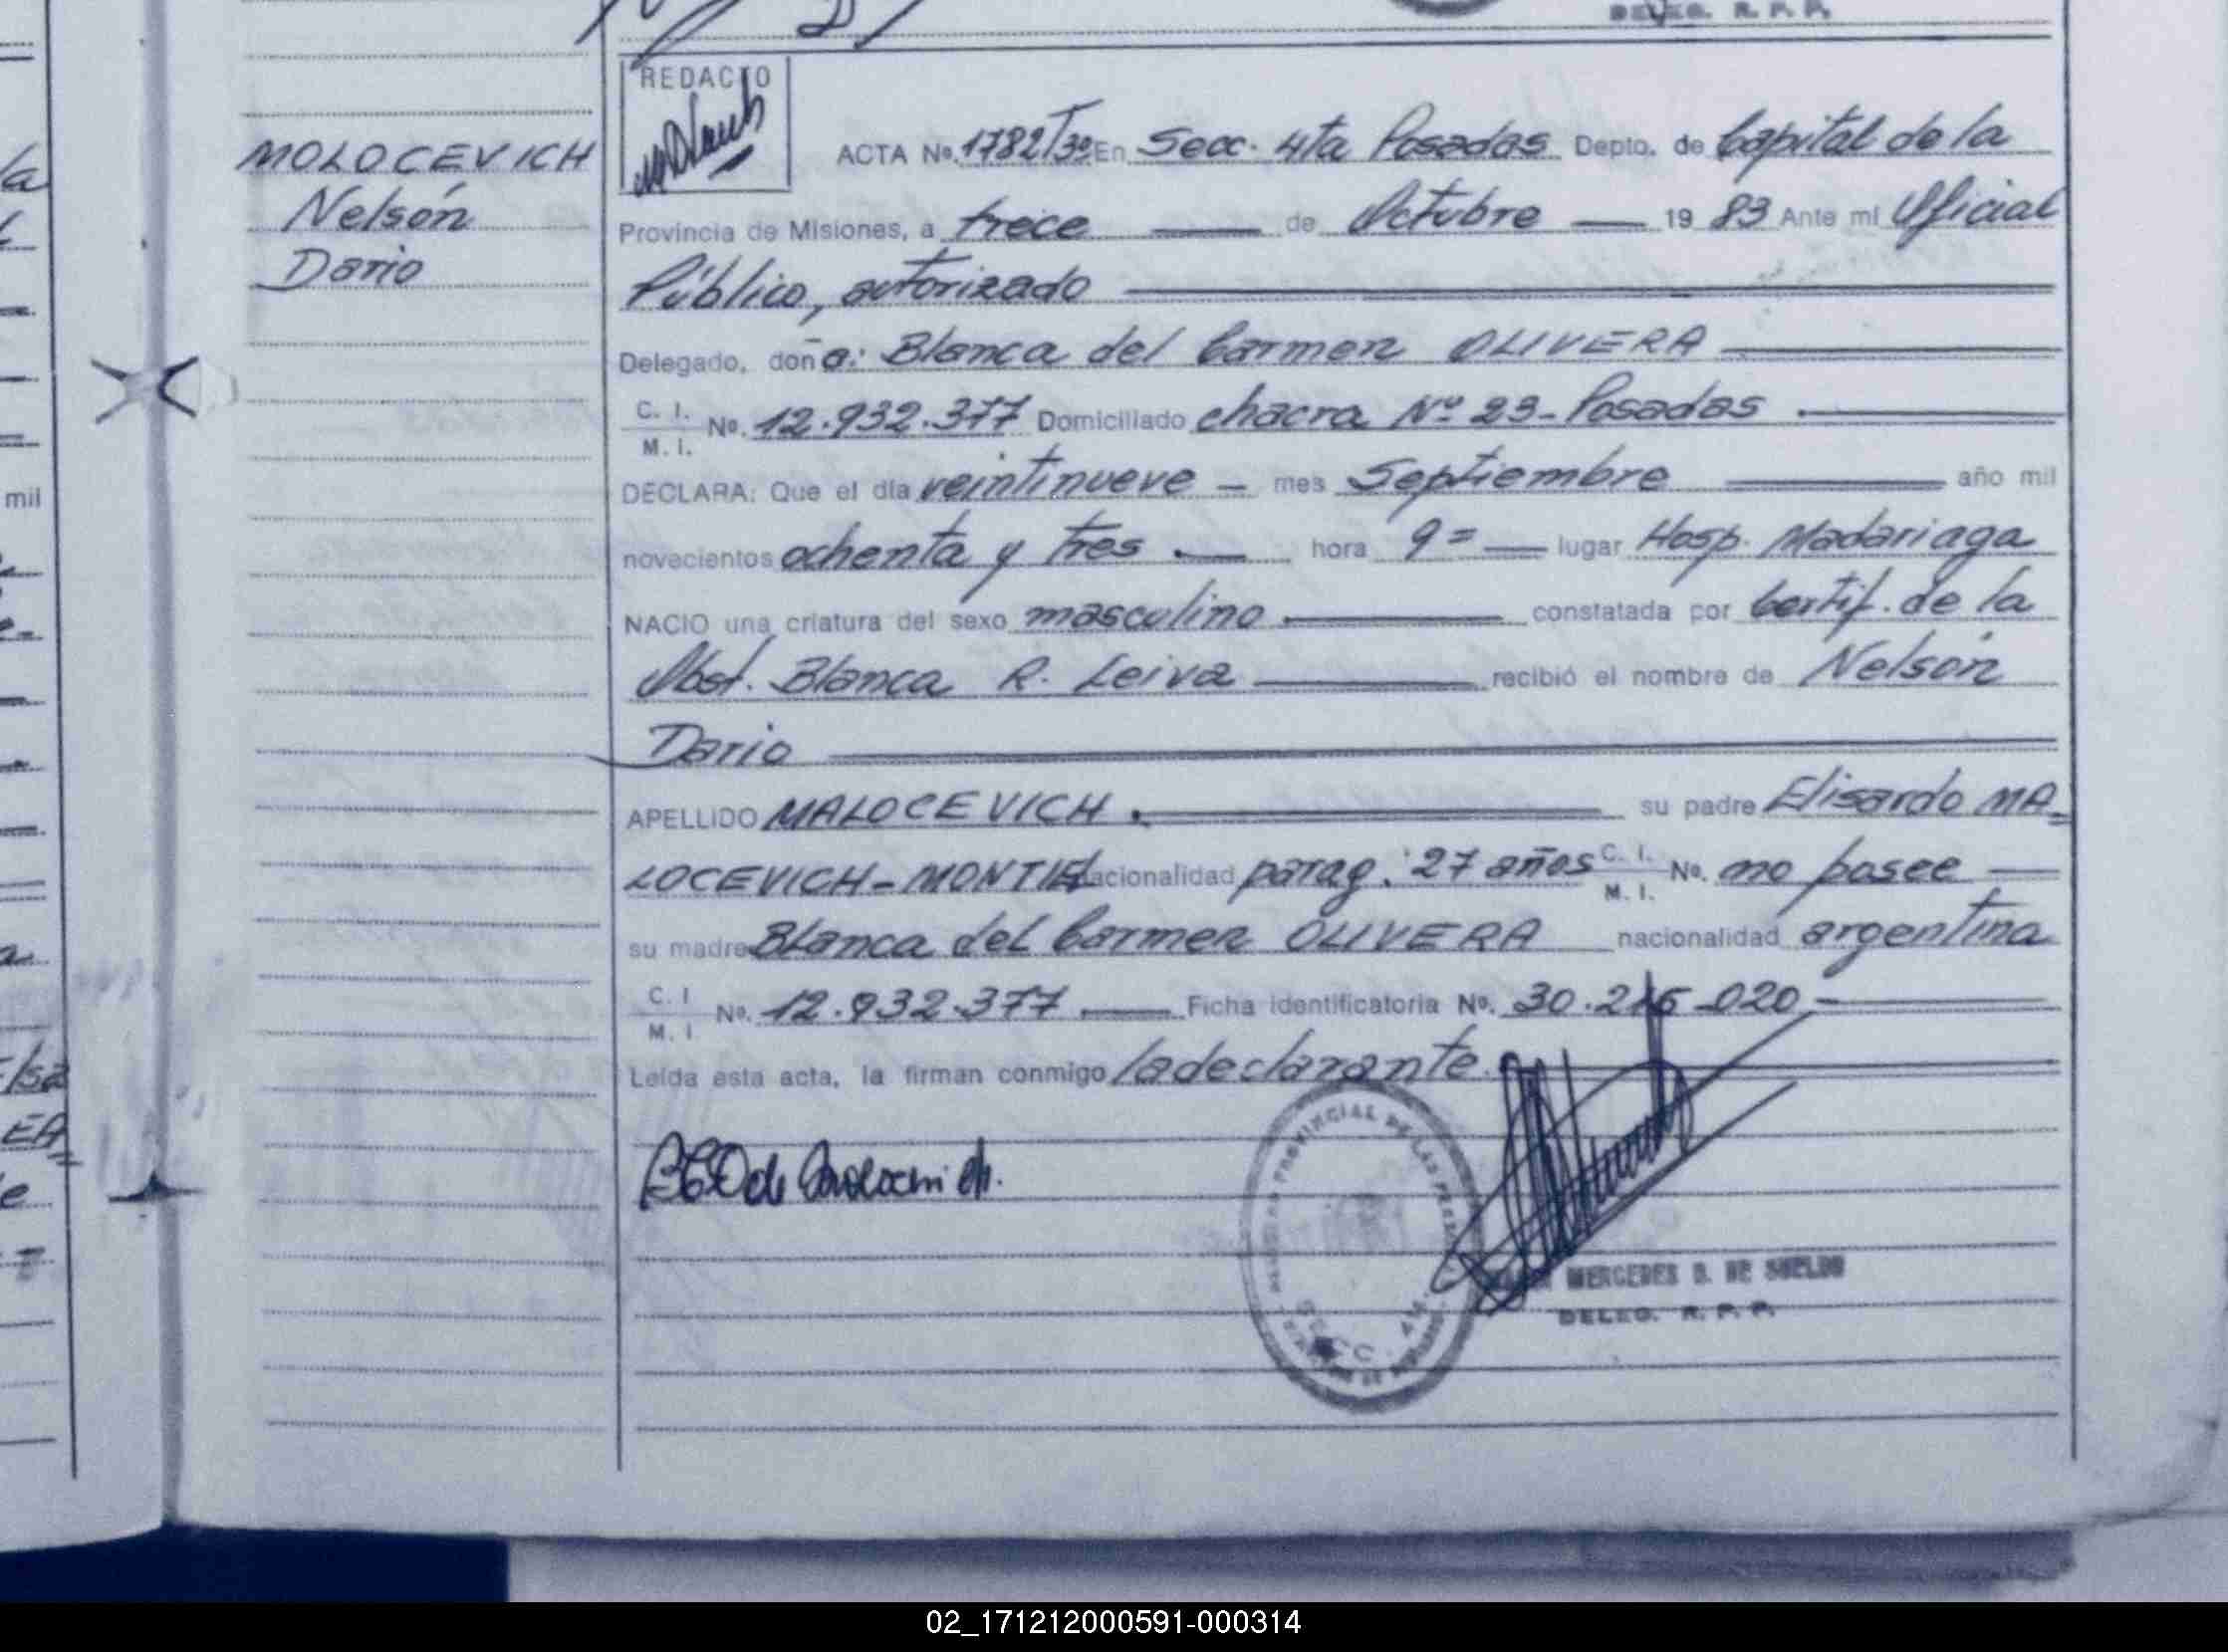 DELEG. R. P. P.
REDACTO
MOLOCEVICH
Nelsón
Dario
ACTA No. 1782/T3º En Secc. 4ta Posadas Depto. de Capital de la
Provincia de Misiones, a trece de Octubre 19 83 Ante mi Oficial
Público, autorizado
Delegado, doña: Blanca del Carmen OLIVERA
C. I. M. I. No. 12.932.377 Domiciliado chacra Nº 23-Posadas.
DECLARA: Que el día veintinueve - mes Septiembre año mil
novecientos ochenta y tres. hora 9= lugar Hosp. Madariaga
NACIO una criatura del sexo masculino constatada por Certif. de la
Obst. Blanca R. Leiva recibió el nombre de Nelsón
Dario
APELLIDO MALOCEVICH. su padre Elisardo MA=
LOCEVICH-MONTIEL nacionalidad parag. 27 años C. I. M. I. No. no posee
su madre Blanca del Carmen OLIVERA nacionalidad argentina
C. I M. I No. 12.932.377. Ficha identificatoria No. 30.216-020-
Leída esta acta, la firman conmigo la declarante.
MERCEDES B. DE SUELDO
DELEG. R. P. P.
02_171212000591-000314